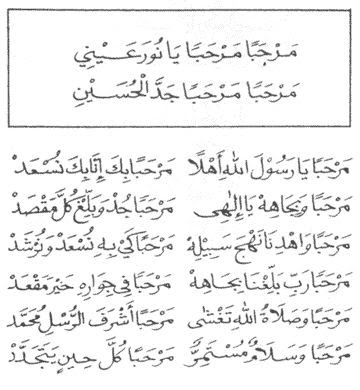 مَرْحَبًا مَرْحَبًا يَا نُورَ عَيْنِي
مَرْحَبًا مَرْحَبًا جَدَّ الْحُسَيْنِ
مَرْحَبًا يَا رَسُوْلَ اللهِ أَهْلًا مَرْحَبًا بِكَ إِنَّا بِكَ نُسْعَدْ
مَرْحَبًا وَبِجَاهِهْ يَا إِلٰهِى مَرْحَبًا جُدْ وَبَلِّغْ كُلَّ مَقْصَدْ
مَرْحَبًا وَاهْدِنَا نَهْجَ سَبِيْلِهْ مَرْحَبًا كَيْ بِهِ نُسْعَدْ وَنُرْشَدْ
مَرْحَبًا رَبِّ بَلِّغْنَا بِجَاهِهْ مَرْحَبًا فِي جِوَارِهِ خَيْرَ مَقْعَدْ
مَرْحَبًا وَصَلَاةُ اللهِ تَغْشٰى مَرْحَبًا أَشْرَفَ الرُّسْلِ مُحَمَّدْ
مَرْحَبًا وَسَلَامٌ مُسْتَمِرٌّ مَرْحَبًا كُلَّ حِيْنٍ يَتَجَدَّدْ